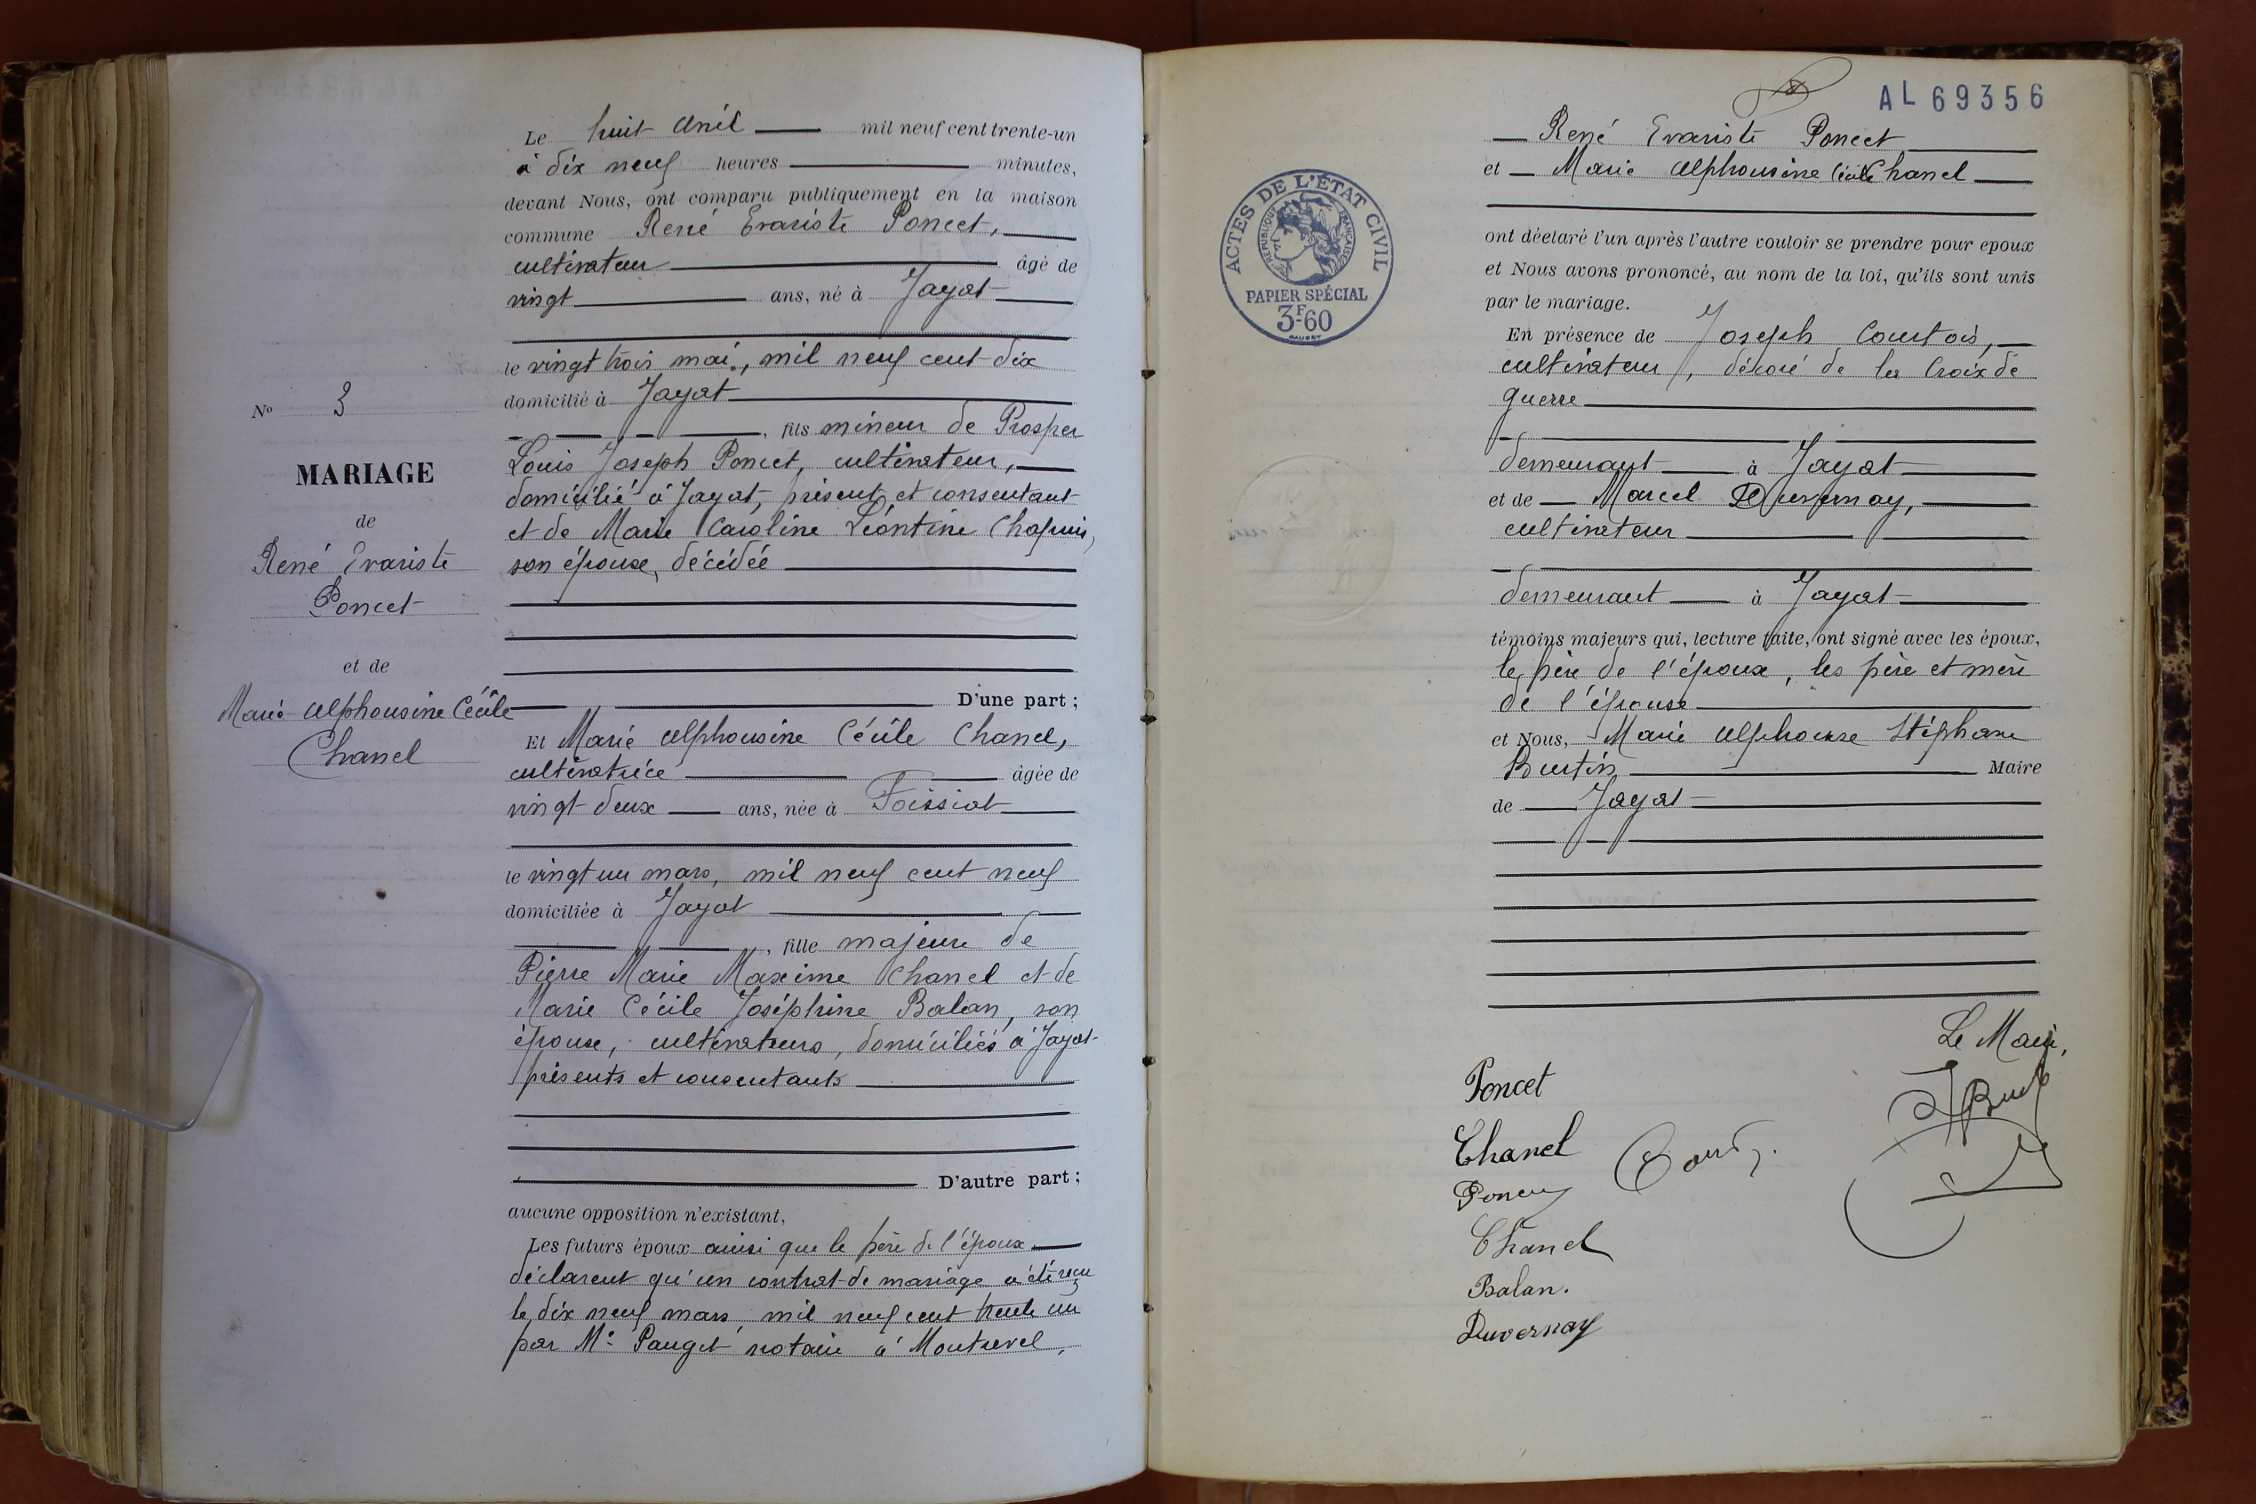 Le huit Avril mil neuf cent trente-un
à dix neuf heures minutes,
devant Nous, ont comparu publiquement en la maison
commune René Evariste Poncet,
cultivateur âgé de
vingt ans, né à Jayat
le vingt trois mai, mil neuf cent dix
domicilié à Jayat
, fils mineur de Prosper
Louis Joseph Poncet, cultivateur,
domicilié à Jayat, présent et consentant
et de Marie Caroline Léontine Chapuis,
son épouse, décédée
D'une part ;
Et Marie Alphonsine Cécile Chanel,
cultivatrice âgée de
vingt deux ans, née à Foissiat
le vingt un mars, mil neuf cent neuf
domiciliée à Jayat
, fille majeure de
Pierre Marie Maxime Chanel et de
Marie Cécile Joséphine Balan, son
épouse, cultivateurs, domiciliés à Jayat
présents et consentants
D'autre part ;
aucune opposition n'existant,
Les futurs époux ainsi que le père de l'époux
déclarent qu'un contrat de mariage a été reçu
le dix neuf mars, mil neuf cent trente un
par Me Pauget notaire à Montrevel,
No 3
MARIAGE
de
René Evariste
Poncet
et de
Marie Alphonsine Cécile
Chanel
AL 69356
René Evariste Poncet
et Marie Alphonsine Cécile Chanel
ont déclaré l'un après l'autre vouloir se prendre pour epoux
et Nous avons prononcé, au nom de la loi, qu'ils sont unis
par le mariage.
En présence de Joseph Courtois,
cultivateur, décoré de la Croix de
guerre
demeurant à Jayat
et de Marcel Duvernay,
cultivateur
demeurant à Jayat
témoins majeurs qui, lecture faite, ont signé avec les époux,
le père de l'époux, les père et mère
de l'épouse
et Nous, Marie Alphonse Stéphane
Burtin Maire
de Jayat
ACTES DE L'ÉTAT CIVIL
RÉPUBLIQUE FRANÇAISE
PAPIER SPÉCIAL
3F60
Le Maire,
Poncet
Chanel
Poncet
Chanel
Balan.
Duvernay